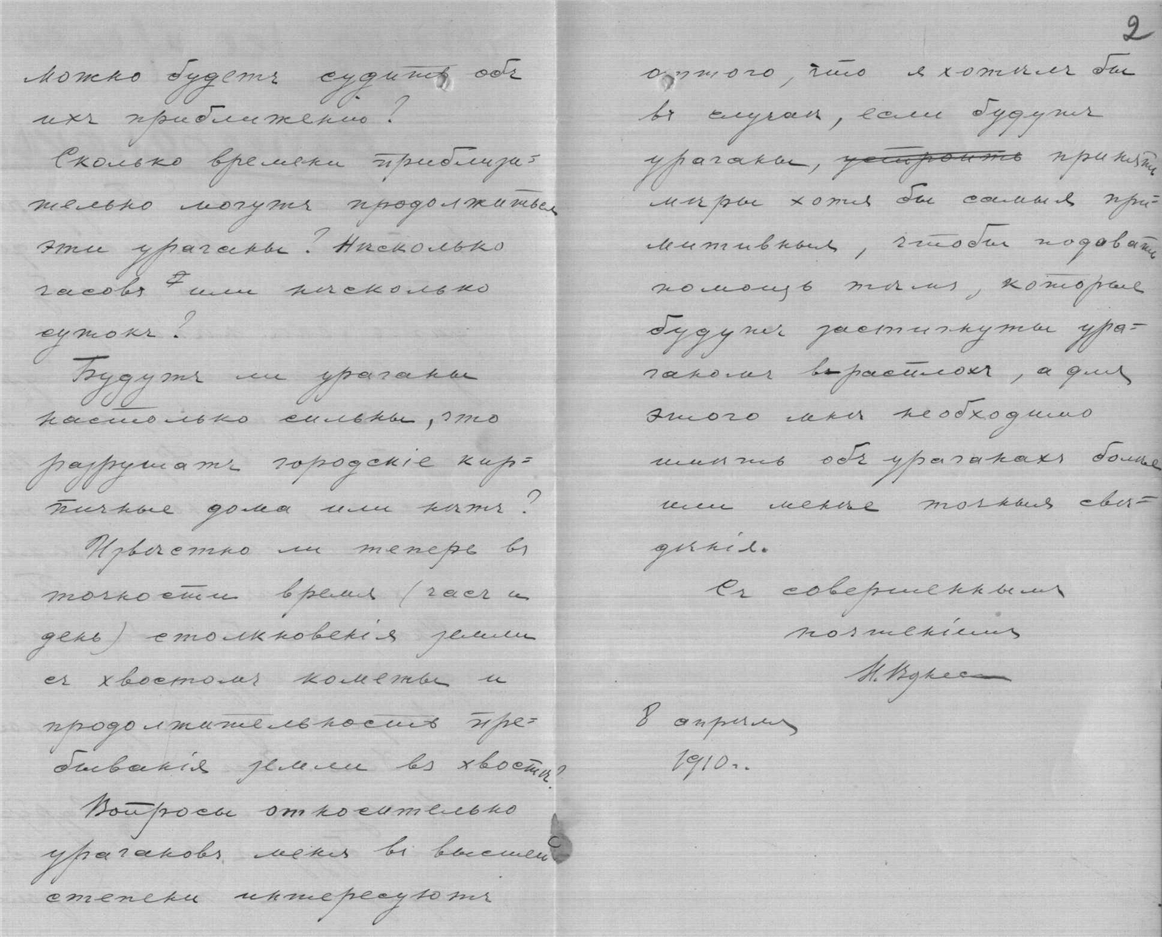 можно будетъ судить объ
ихъ приближеніи?
Сколько времени приблизи=
тельно могутъ продолжиться
эти ураганы? Нѣсколько
часовъ или нѣсколько
сутокъ?
Будутъ ли ураганы
настолько сильны, что
разрушатъ городскіе кир=
пичные дома или нѣтъ?
Извѣстно ли теперь въ
точности время (часъ и
день) столкновенія земли
съ хвостомъ кометы и
продолжительность пре=
быванія земли въ хвостѣ?
Вопросы относительно
урагановъ меня въ высшей
степени интересуютъ
2
оттого, что я хотѣлъ бы
въ случаѣ, если будутъ
ураганы, устроить принять
мѣры хотя бы самыя при=
митивныя, чтобы подовать
помощь тѣмъ, которые
будутъ застигнуты ура=
ганомъ врасплохъ, а для
этого мнѣ необходимо
имѣть объ ураганахъ болѣе
или менѣе точныя свѣ=
дѣнія.
Съ совершеннымъ
почтеніемъ
8 апрѣля
1910 г.